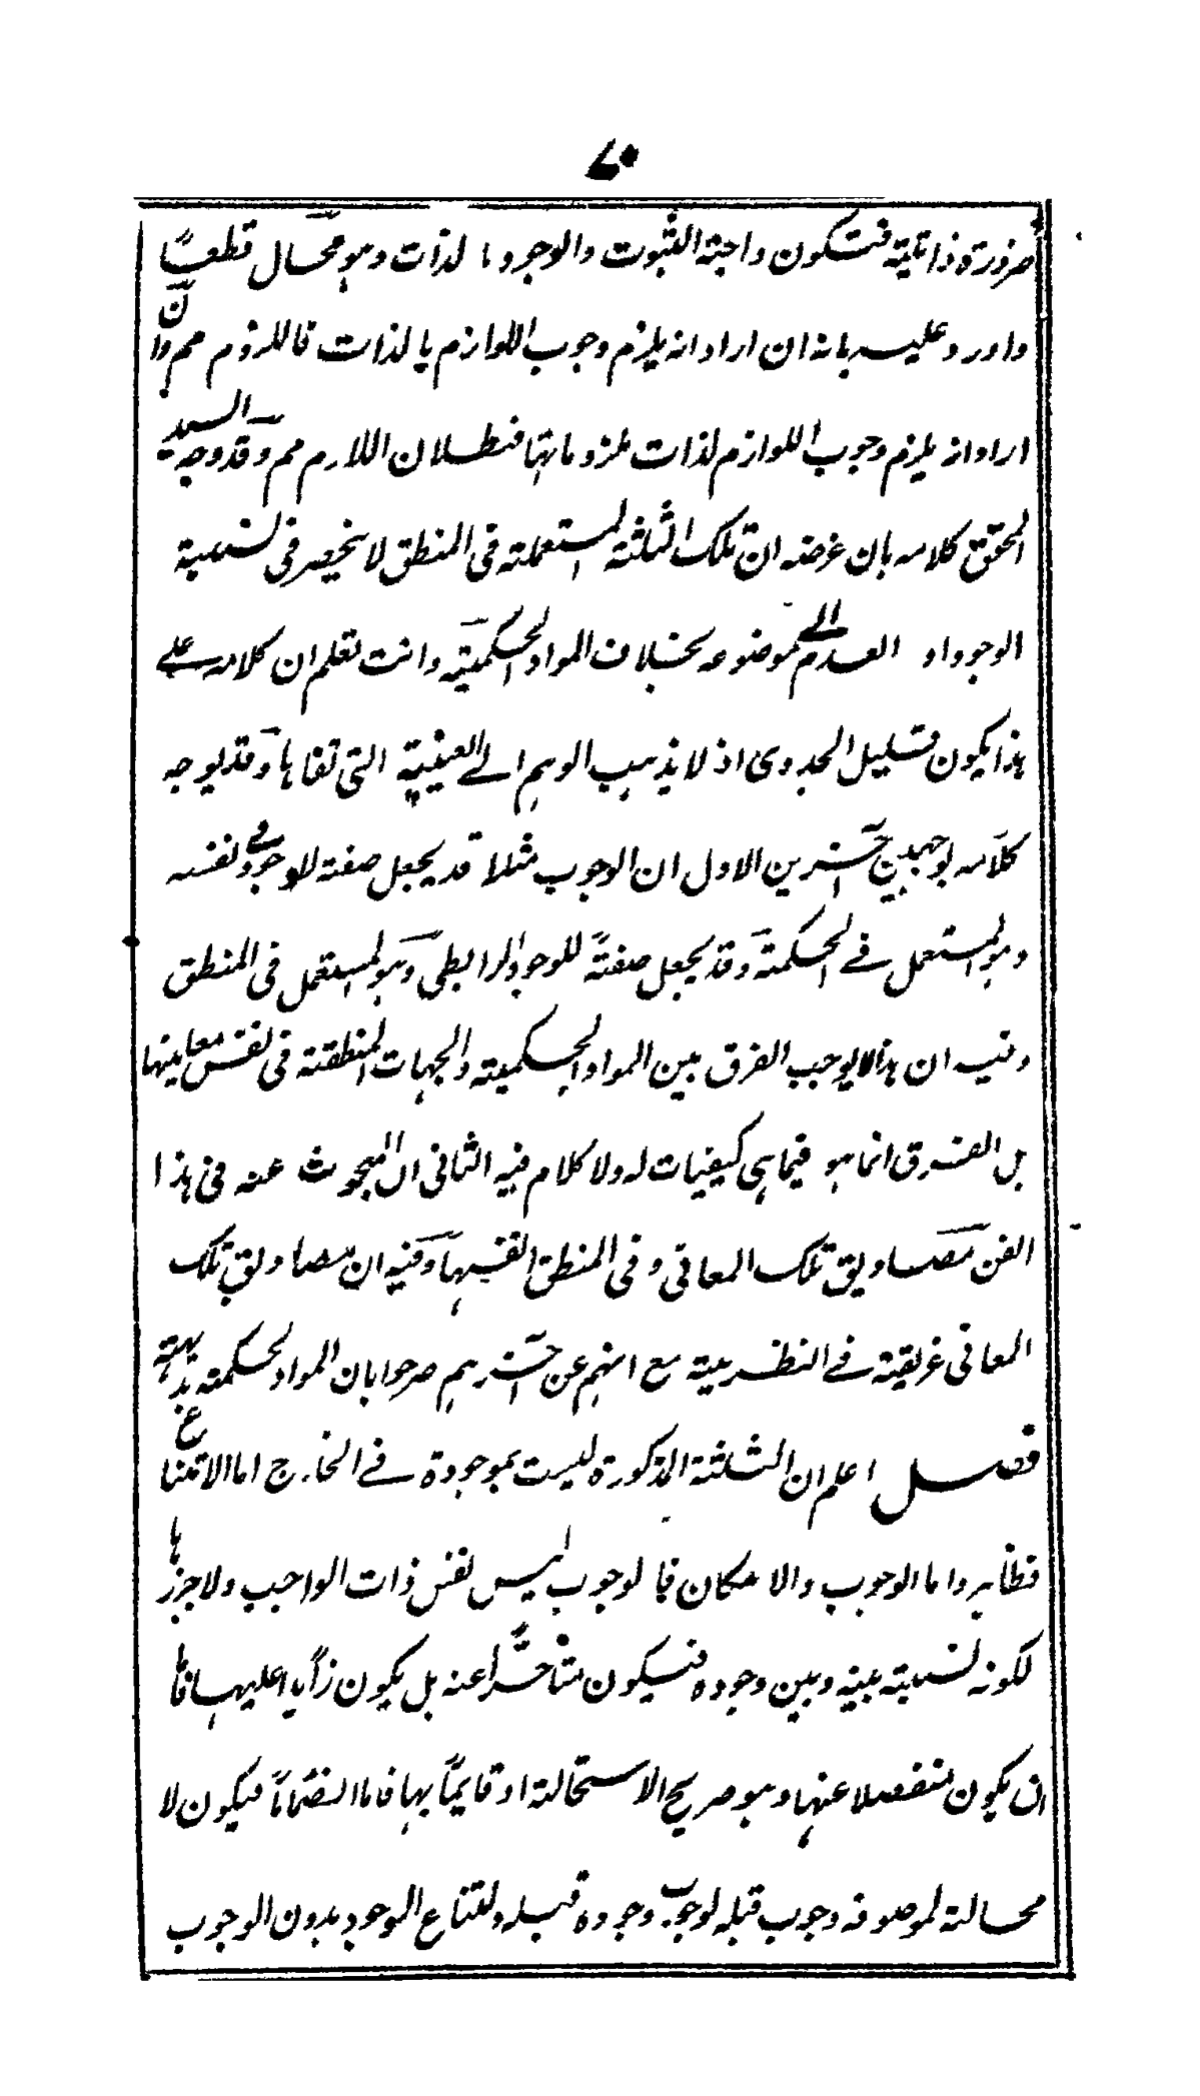 ٧٠
ضرورة ذاتية فتكون واجبة الثبوت والوجود بالذات وهو محال قطعا
واورد عليه بانه ان اراد انه يلزم وجوب اللوازم بالذات فاللزوم مم وان
اراد انه يلزم وجوب اللوازم لذات ملزوماتها فبطلان اللازم مم وقد وجه السيد
المحقق كلامه بان غرضه ان تلك الثلثة المستعملة فى المنطق لا ينحصر فى نسبة
الوجود او العدم الى موضوعه بخلاف المواد الحكمية وانت تعلم ان كلامه على
هذا يكون قليل الجدوى اذ لا يذهب الوهم الى العينية التى نفاها وقد يوجه
كلامه بوجهين آخرين الاول ان الوجوب مثلا قد يجعل صفة للوجود فى نفسه
وهو المستعمل فى الحكمة وقد يجعل صفة للوجود الرابطى وهو المستعمل فى المنطق
وفيه ان هذا لا يوجب الفرق بين المواد الحكمية والجهات المنطقية فى نفس معانيها
بل الفرق انما هو فيما هى كيفيات له ولا كلام فيه الثانى ان المبحوث عنه فى هذا
الفن مصاديق تلك المعانى وفى المنطق انفسها وفيه ان مصاديق تلك
المعانى غريقة فى النظرية مع انهم عن آخرهم صرحوا بان المواد الحكمية بديهية
فصل اعلم ان الثلثة المذكورة ليست بموجودة فى الخارج اما الامتناع
فظاهر واما الوجوب والامكان فالوجوب ليس نفس ذات الواجب ولا جزءها
لكونه نسبة بينه وبين وجوده فيكون متأخرا عنه بل يكون زايدا عليها فاما
ان يكون منفصلا عنها وهو صريح الاستحالة او قايما بها فاما انضماما فيكون لا
محالة لموصوفه وجوب قبله لوجوب وجوده قبله ولامتناع الوجود بدون الوجوب